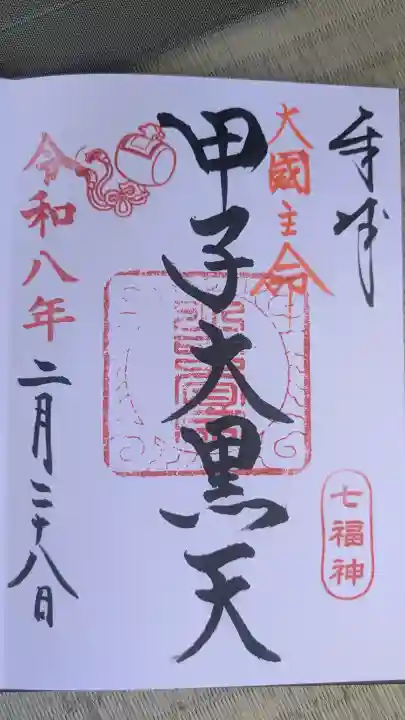 奉拝
大國主命
七福神
甲子大黒天
令和八年
二月二十八日